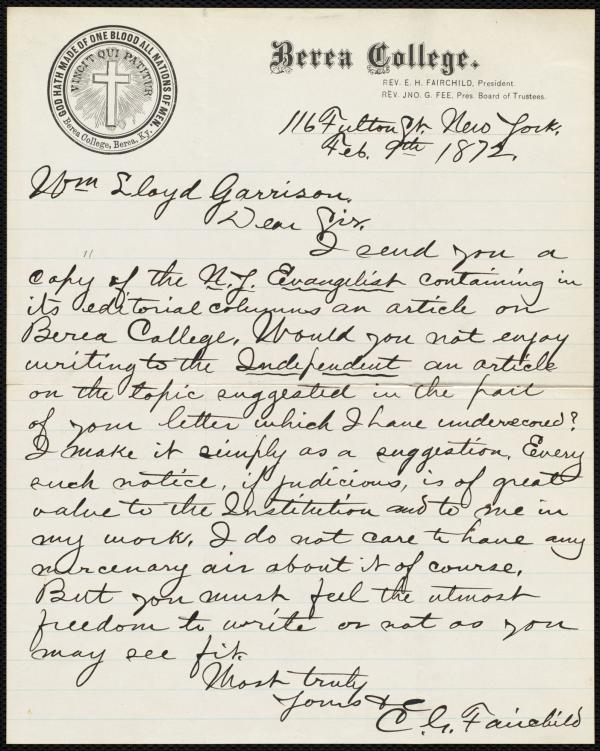 GOD HATH MADE OF ONE BLOOD ALL NATIONS OF MEN.
VINCIT QUI PATITUR
Berea College, Berea, Ky.
Berea College.
REV. E. H. FAIRCHILD, President.
REV. JNO. G. FEE, Pres. Board of Trustees.
116 Fulton St. New York.
Feb. 9th 1872.
Wm Lloyd Garrison.
Dear Sir.
I send you a
copy of the N.Y. Evangelist containing in
its editorial columns an article on
Berea College. Would you not enjoy
writing to the Independent an article
on the topic suggested in the part
of your letter which I have underscored?
I make it simply as a suggestion. Every
such notice, if judicious, is of great
value to the Institution and to me in
my work. I do not care to have any
mercenary air about it of course.
But you must feel the utmost
freedom to write or not as you
may see fit.
Most truly
Yours &c
C. G. Fairchild